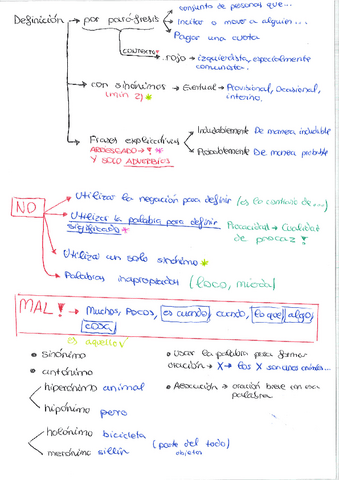 conjunto de personas que...
Definición → por paráfrasis → Incitar o mover a alguien...
Pagar una cuota
CONTEXTO
rojo → izquierdista, especialmente
comunista.
con sinónimos → Eventual → Provisional, Ocasional,
(mín 2) * interino.
Frases explicativas Indudablemente De manera indudable
ARRIESGADO → ! *
Y SOLO ADVERBIOS Probablemente De manera probable
NO
Utilizar la negación para definir (es lo contrario de...)
Utilizar la palabra para definir Procacidad → Cualidad
significado * de procaz !
Utilizar un solo sinónimo *
Palabras inapropiadas (loco, mioda)
MAL ! → Muchos, Pocos, es cuando, cuando, lo que, algo,
cosa,
es aquello
• sinónimo
• antónimo
hiperónimo animal
hipónimo perro
holónimo bicicleta
merónimo sillín (parte del todo)
objetos
• usar la palabra para formar
oración → X → los X son unos animales...
• Asociación → oración breve con esa
palabra.